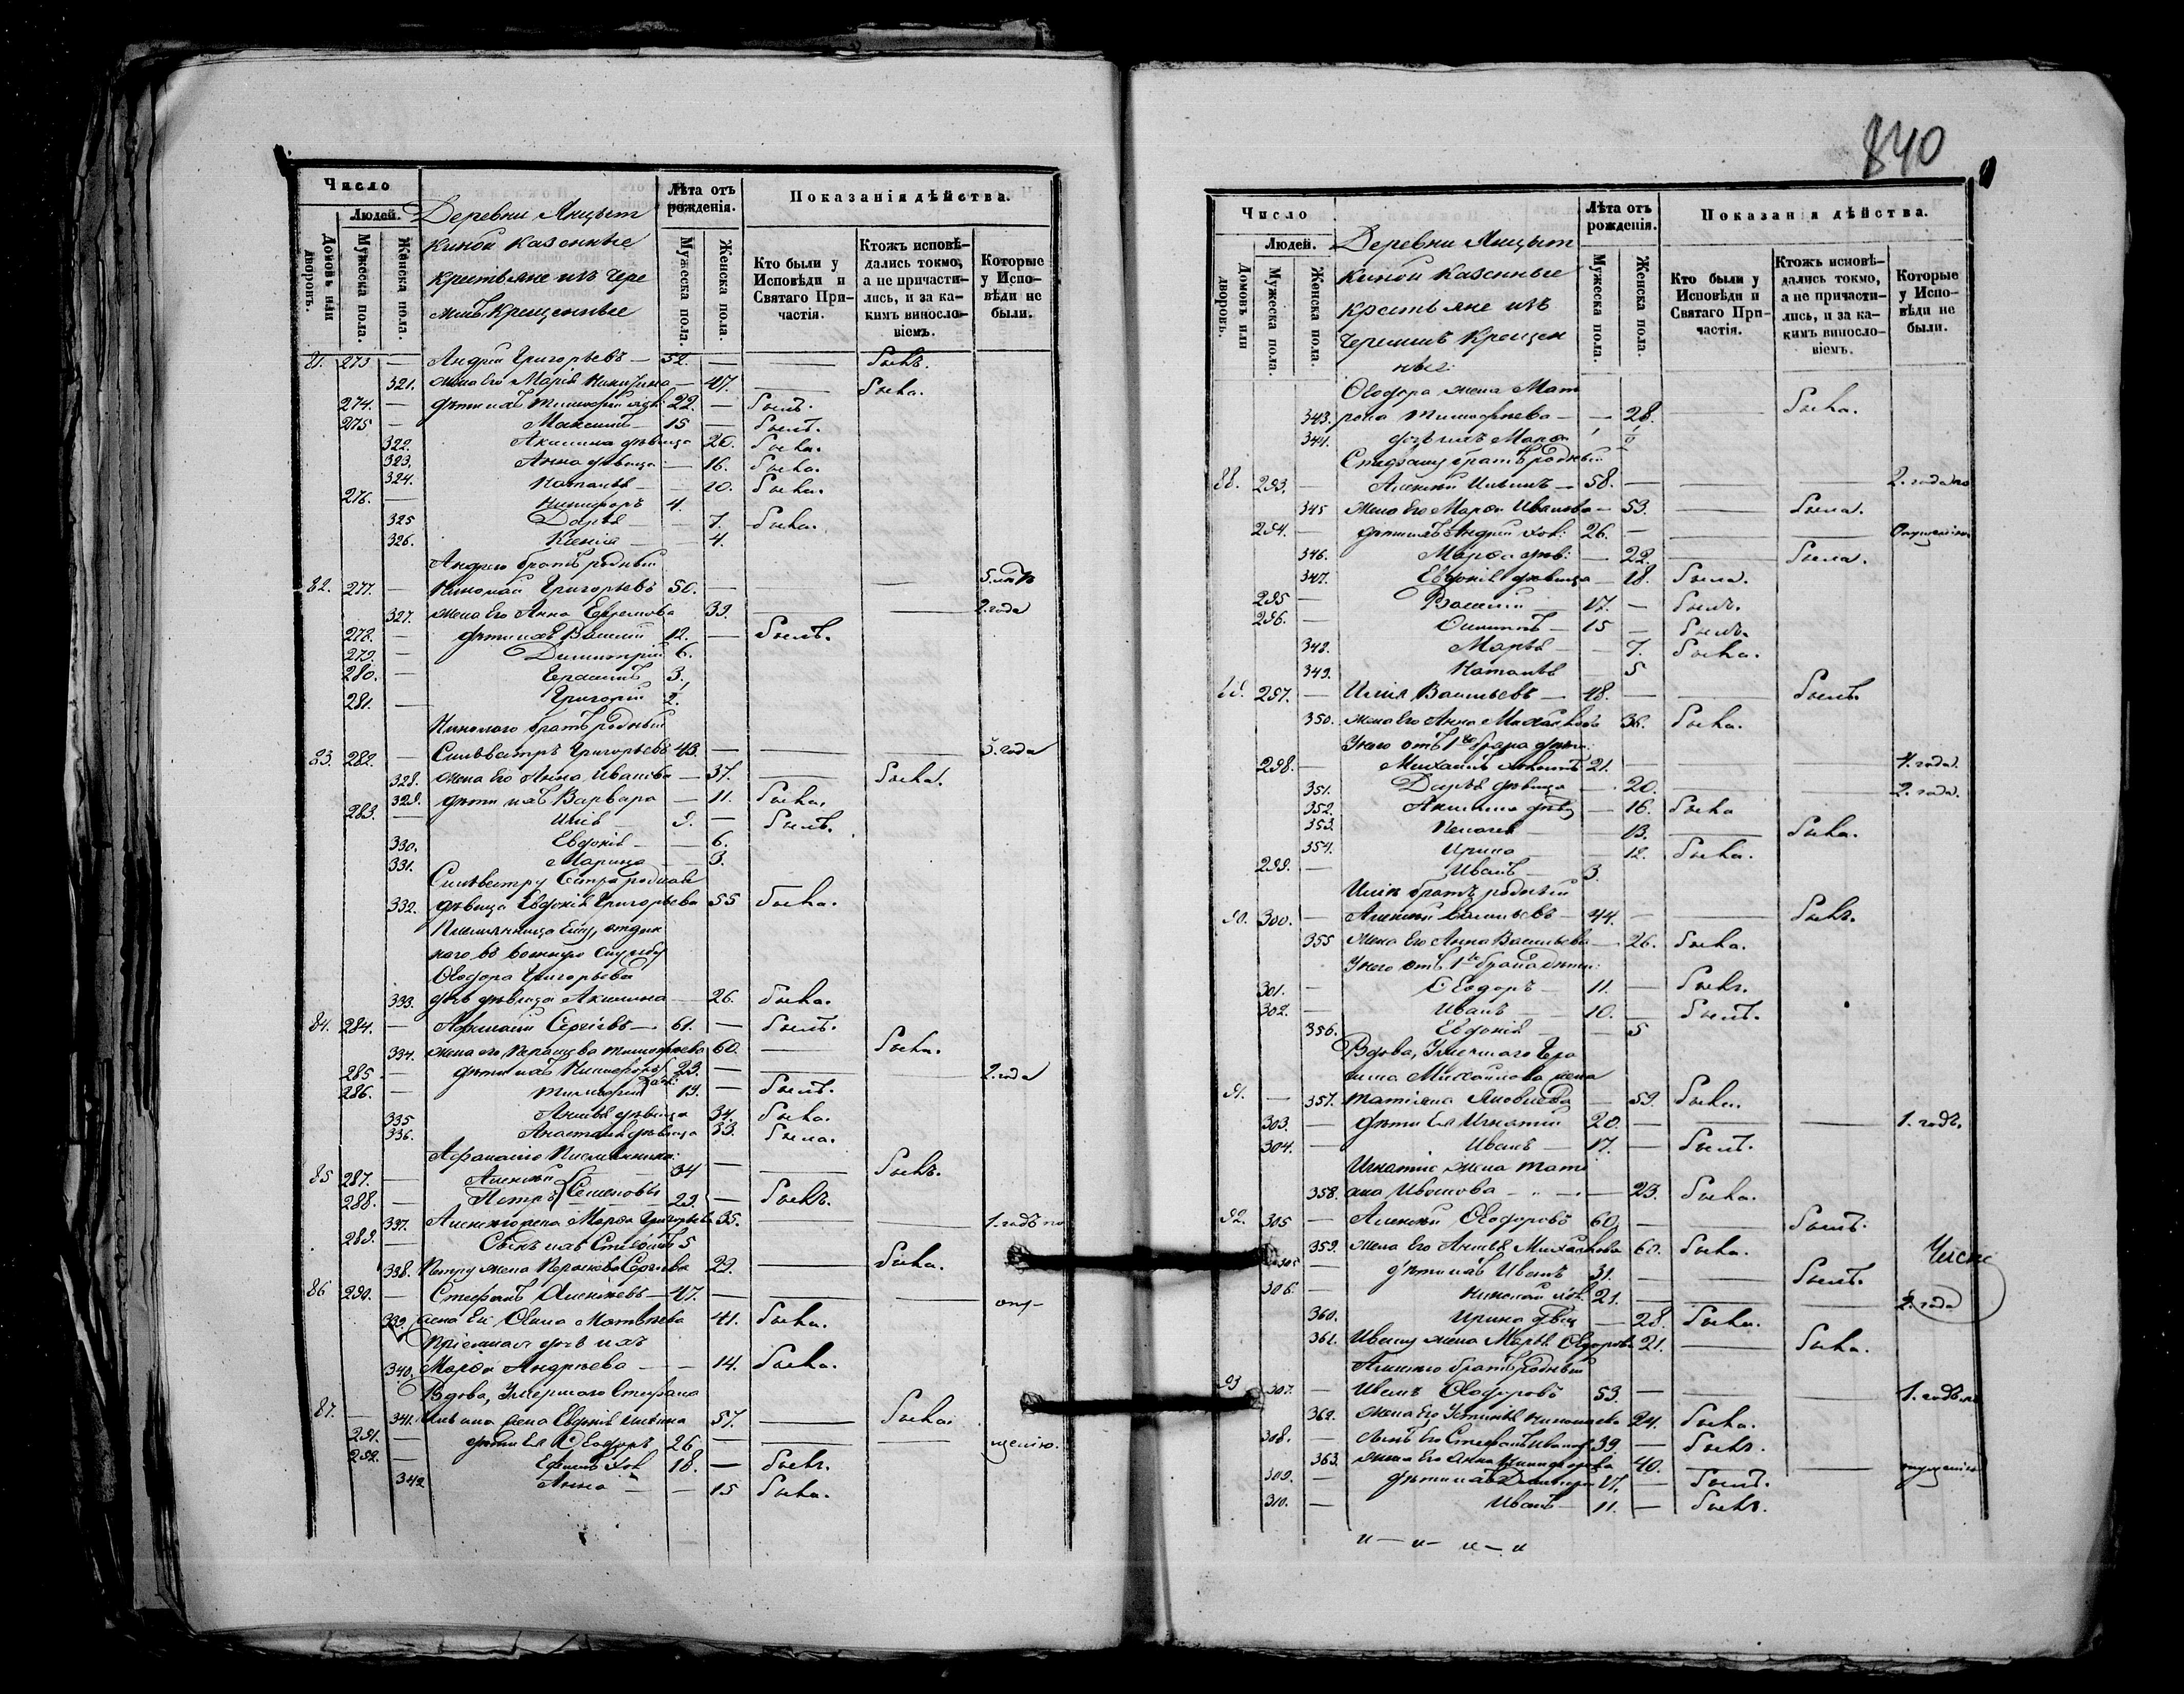 Число
Людей.
Домовъ или дворовъ.
Мужеска пола.
Женска пола.
Деревни
казенные
крестьяне изъ Чере
мисъ Крещенные
Лѣта отъ рожденія.
Мужеска пола.
Женска пола.
Показанія дѣйства.
Кто были у Исповѣди и Святаго Причастія.
Ктожъ исповѣдались токмо, а не причастились, и за какимъ винословіемъ.
Которые у Исповѣди не были.
81. 273 — Андрей Григорьевъ — 52. — — былъ.
321. жена его Марія Никитина — 47. — была.
274. — дѣти ихъ Тимофей 22. — былъ.
275 — Максимъ — 15 — былъ.
322. Акилина дѣвица 20. была.
323. Анна дѣвица — 16. была.
324. Наталья — 10. была.
276. — Никифоръ 4.
325 Дарья — 7. была.
326. Ксенія — — 4.
Андрею братъ родный
82. 277. — Николай Григорьевъ 50. — — —
327. жена его Анна Ефремова 39. — — 2. года
278. — дѣти ихъ Василій 12. — былъ.
279. — Димитрій 6.
280. — Герасимъ 3.
281. — Григорій 2.
Николаю братъ родный
83. 282. — Сильвестръ Григорьевъ 43. — — — 3. года
328. жена его Анна Иванова — 37. — была.
329. дѣти ихъ Варвара — 11. была.
283. — Илія — 9. — былъ.
330. Евдокія — — 6.
331. Марина — — 3.
Сильвестру сестра родная
332. дѣвица Евдокія Григорьева 55 была.
Племянница ему, отдан
наго въ военную службу
Ѳеодора Григорьева
333. дочь дѣвица Акилина — 26. была.
84. 284. — Афанасій Сергѣевъ — 61. — былъ.
334. жена его Параскева Тимофеева 60. — была.
285. — дѣти ихъ Никифоръ 29. — — 2. года
286. — Тимофей 19. — былъ.
335 дѣвица 34. была.
336. Анастасія дѣвица 33. была.
Афанасію племянники:
85 287. — Алексѣй — 34 — — былъ.
288. — Петръ Семеновы 29. — былъ.
337. Алексѣю жена Марѳа Григорьева 35. — — 1. годъ по
289. — Сынъ ихъ 5
338. Петру жена Параскева Сергѣева 22. — была.
86 290. — Стефанъ Алексѣевъ — 47. — — — опу-
339. жена его Анна Матвѣева 41. была.
Пріемная дочь ихъ
340. Марѳа Андреева — — 14. была.
Вдова, Умершаго Стефана
87. — 341. Ильина жена Евдокія 57. — была.
291. — дѣти ея Ѳеодоръ 26. — — — щенію.
292. — Ефимъ хол 18. — былъ.
342 Анна — — 15 была.
840
Число
Людей.
Домовъ или дворовъ.
Мужеска пола.
Женска пола.
Деревни
казенные
крестьяне изъ
Черемисъ Крещен
ные:
Лѣта отъ рожденія.
Мужеска пола.
Женска пола.
Показанія дѣйства.
Кто были у Исповѣди и Святаго Причастія.
Ктожъ исповѣдались токмо, а не причастились, и за какимъ винословіемъ.
Которые у Исповѣди не были.
Ѳеодора жена Мат
343. рена Тимофеева — — 28. — была.
344. дочь ихъ Марѳа
Стефану братъ родный
88. 293. — Алексѣй Ильинъ — 58. — — — 2. года по
345 жена его Марѳа Иванова — 53. — была.
294. — дѣти ихъ Андрей хол: 26. — — Опущенію
346. Марѳа дѣв: — 22. — была.
347. Евдокія дѣвица — 18. была.
295 — Василій — 17. — былъ.
296. — 15 — былъ.
348. Марья — — 7. была.
349. Наталья — 5
89. 297. — Илія Васильевъ — 48. — — былъ.
350. жена его Анна Михайлова 36. была.
У него отъ 1го брака дѣти:
298. — Михаилъ 21. — — — 4. года.
351. Дарья дѣвица — 20. — — 2. года.
352. Акилина дѣв — 16. была
353. Пелагея — — 13. — была.
354. Ирина — — 12. была.
299. — Иванъ — 3.
Иліи братъ родный
90. 300. — Алексѣй Васильевъ — 44. — — былъ.
355 жена его Анна Васильева — 26. была.
У него отъ 1го брака дѣти:
301. — Ѳеодоръ — 11. — былъ.
302. — Иванъ — 10. — былъ.
356. Евдокія — — 5
Вдова, Умершаго Гера
сима Михайлова жена
91. — 357. Татіана Яковлева — 59. была.
303. — дѣти ея Игнатій 20. — — — 1. годъ.
304. — Иванъ — 17. — былъ.
Игнатія жена Тати
358. ана — — 23. была.
92. 305 — Алексѣй Ѳеодоровъ 60. — — былъ.
359. жена его Михайлова 60. была.
305 — дѣти ихъ Иванъ 31. — — былъ.
306. — Николай хол. 21. — — — 2. года
360. Ирина двц — 28. была.
361. Ивану жена Марья Ѳеодорова 21. — была.
Алексѣю братъ родный
93 307. — Иванъ Ѳеодоровъ 53. — — — 1. годъ по
362. жена его Устинія Николаева 24. была.
308. — сынъ его Стефанъ Ивановъ 39. — былъ.
363. жена его Анна Никифорова 40. — — опущенію
309. — дѣти ихъ 17. — былъ.
310. — Иванъ — 11. — былъ.